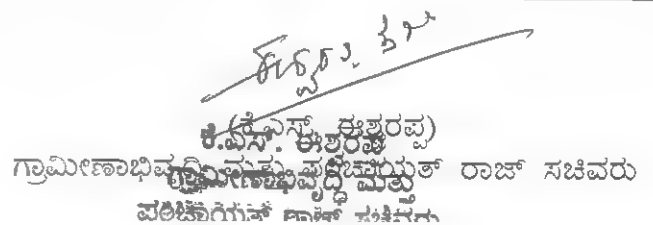 (ಕೆ.ಎಸ್. ಈಶ್ವರಪ್ಪ)
ಕೆ.ಎಸ್. ಈಶ್ವರಪ್ಪ
ಗ್ರಾಮೀಣಾಭಿವೃದ್ಧಿ ಮತ್ತು ಪಂಚಾಯತ್ ರಾಜ್ ಸಚಿವರು
ಗ್ರಾಮೀಣಾಭಿವೃದ್ಧಿ ಮತ್ತು
ಪಂಚಾಯತ್ ರಾಜ್ ಸಚಿವರು